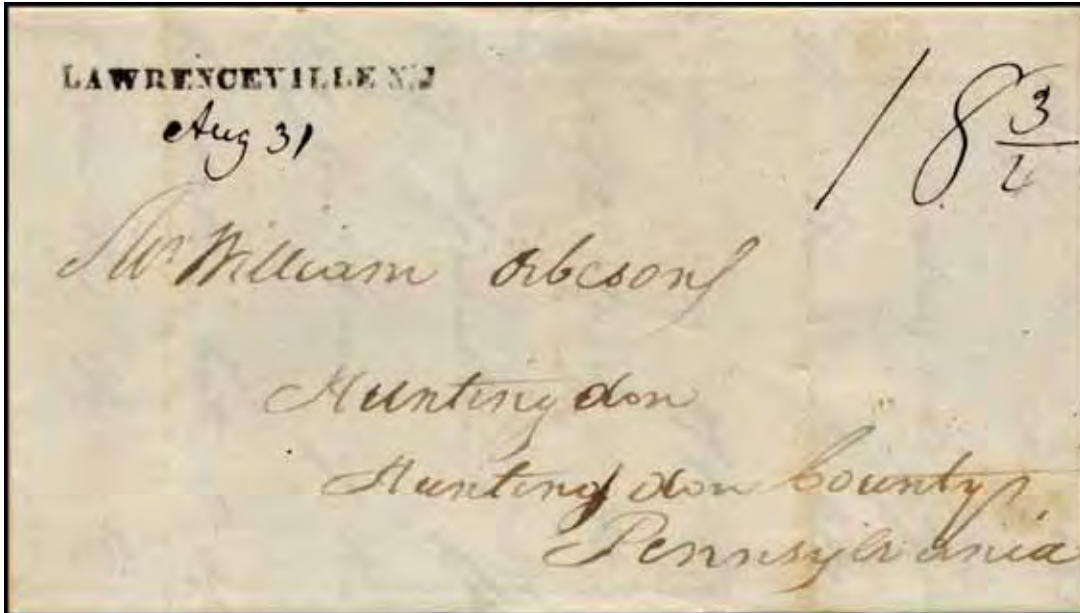 LAWRENCEVILLE N.J
Aug 31
18 3/4
Mr William Orbison
Huntingdon
Huntingdon County
Pennsylvania